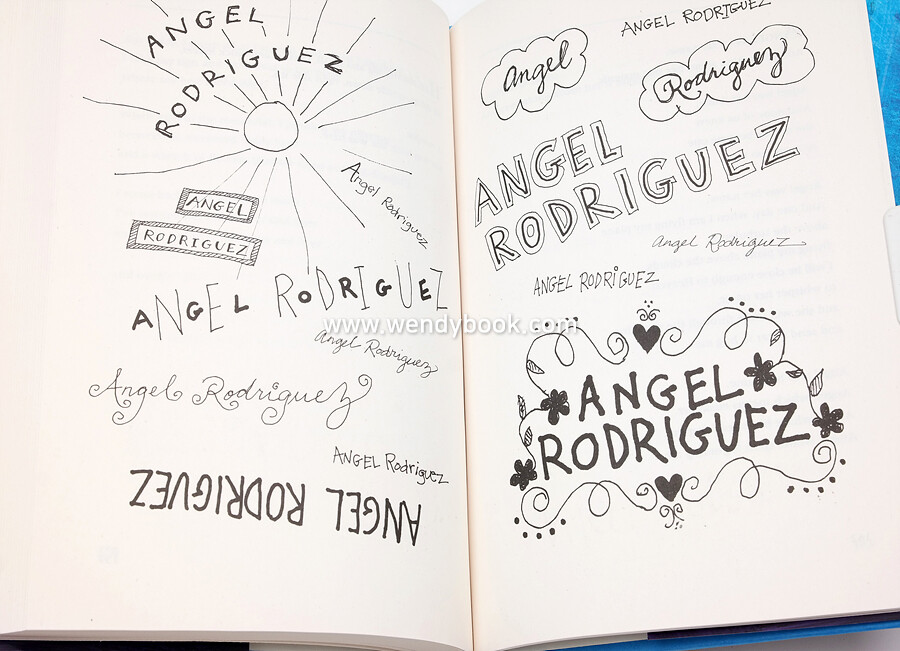 ANGEL
RODRIGUEZ
ANGEL
RODRIGUEZ
Angel Rodriguez
ANGEL RODRIGUEZ
Angel Rodriguez
Angel Rodriguez
ANGEL Rodriguez
ANGEL RODRIGUEZ
ANGEL RODRIGUEZ
Angel
Rodriguez
ANGEL
RODRIGUEZ
Angel Rodriguez
ANGEL RODRIGUEZ
ANGEL
RODRIGUEZ
www.wendybook.com